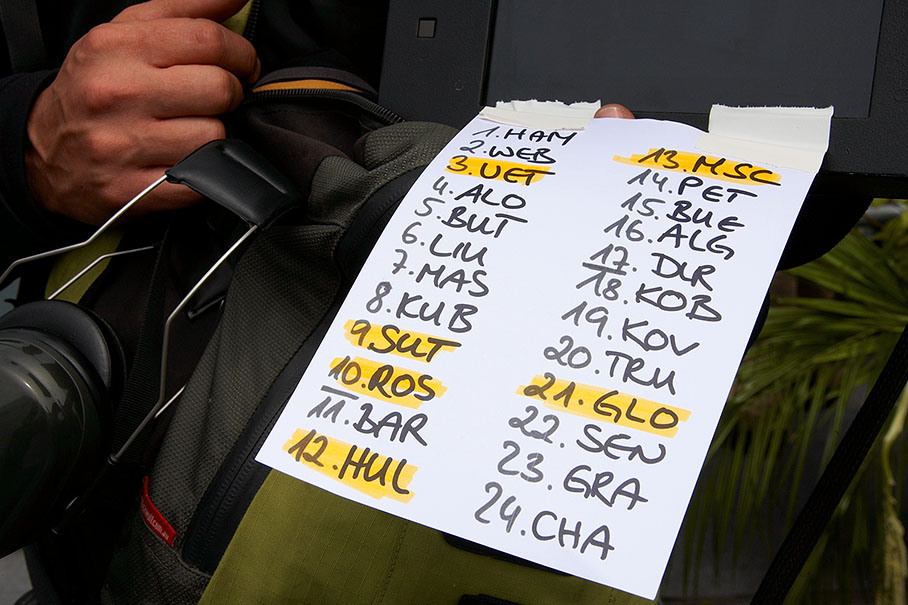 1. HAM
2. WEB
3. VET
4. ALO
5. BUT
6. LIU
7. MAS
8. KUB
9. SUT
10. ROS
11. BAR
12. HUL
13. MSC
14. PET
15. BUE
16. ALG
17. DLR
18. KOB
19. KOV
20. TRU
21. GLO
22. SEN
23. GRA
24. CHA